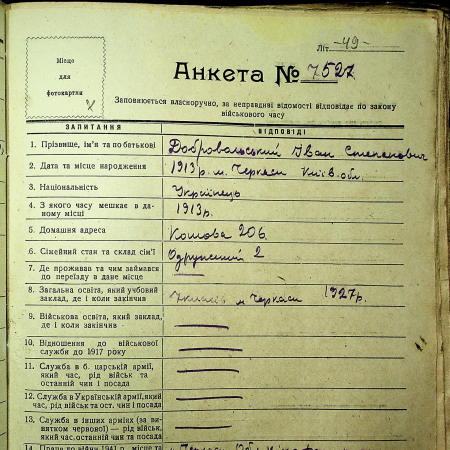 Літ -49-
Місце
для
фотокартки
Анкета № 7527
Заповнюється власноручно, за неправдиві відомості відповідає по закону
військового часу
ЗАПИТАННЯ ВІДПОВІДІ
1. Прізвище, ім'я та по батькові Добровольський Іван Степанович
2. Дата та місце народження 1913 р. м. Черкаси Київ. обл.
3. Національність Українець
4. З якого часу мешкає в да-
ному місці 1913 р.
5. Домашня адреса 206
6. Сімейний стан та склад сім'ї Одружений 2
7. Де проживав та чим займався
до переїзду в дане місце —
8. Загальна освіта, який учбовий
заклад, де і коли закінчив м. Черкаси 1927 р.
9. Військова освіта, який заклад,
де і коли закінчив —
10. Відношення до військової
служби до 1917 року —
11. Служба в б. царській армії,
який час, рід військ та
останній чин і посада —
12. Служба в Українській армії, який
час, рід військ та ост. чин і посада —
13. Служба в інших арміях (за ви-
нятком червоної) — рід військ,
який час, останній чин та посада —
14. Праця до війни 1941 р. місце та